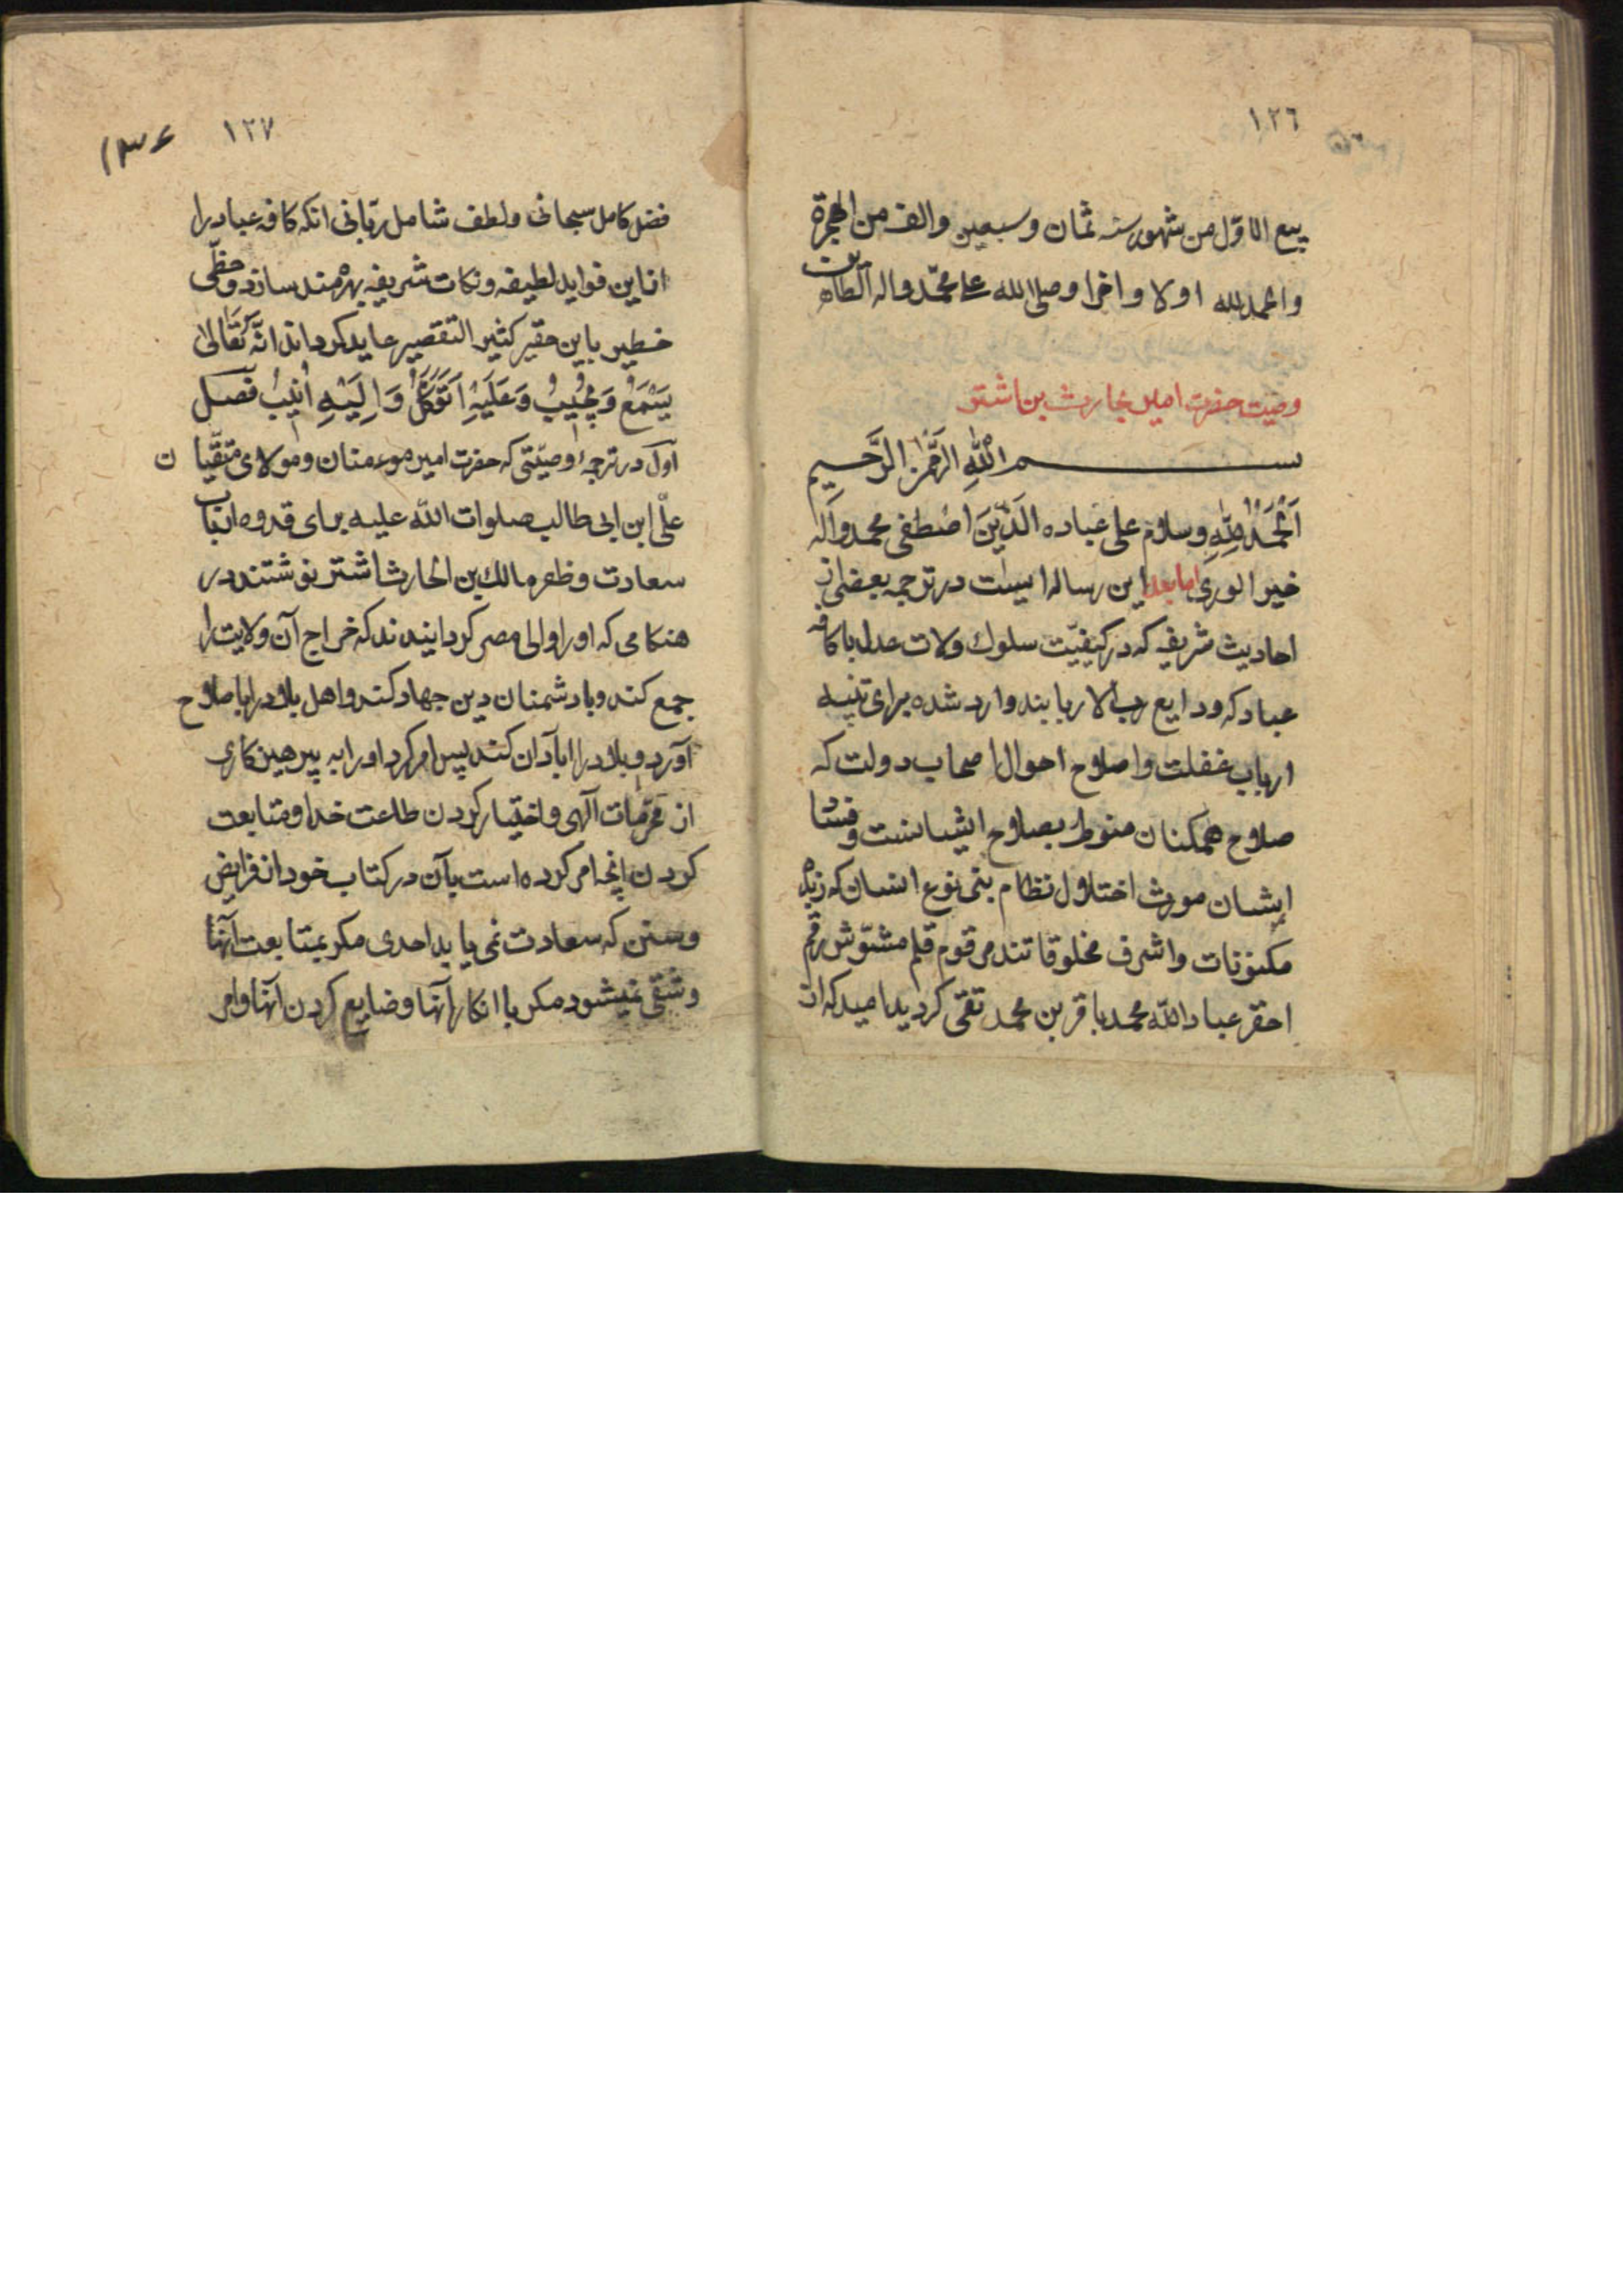 ١٢٦
ربیع الاول من شهور سنه ثمان وسبعین والف من الهجرة
والحمدلله اولا واخرا وصلی الله علی محمد واله الطاهرین
وصیت حضرت امیر بحارث بن اشتر
بسم الله الرحمن الرحیم
اَلْحَمْدُ لِلّٰهِ وسلام علی عباده الَّذینَ اصْطفی محمد وآله
خیر الوری اما بعد این رساله ایست در ترجمه بعضی از
احادیث شریفه که در کیفیّت سلوك ولات عدل با کافه
عباد که ودایع رب الاربابند وارد شده برای تنبیه
ارباب غفلت واصلاح احوال اصحاب دولت که
صلاح همکنان منوط بصلاح ایشانست وفساد
ایشان مورث اختلال نظام بنی نوع انسان که زبدهٔ
مکنونات واشرف مخلوقاتند مرقوم قلم مشوّش رقم
احقر عباد الله محمد باقر بن محمد تقی کردید امید که از
١٢٧
١٣٤
فضل کامل سبحانی ولطف شامل ربّانی انکه کافه عباد را
از این فواید لطیفه ونکات شریفه بهره‌مند سازد وحظّی
خطیر باین حقیر کثیر التقصیر عاید کرداند انّه تَعٰالیٰ
یَسْمَعُ وَیُجیبُ وَعَلَیْهِ اَتَوَکَّلُ وَاِلَیْهِ اُنیبُ فصل
اول در ترجمهٔ وصیّتی که حضرت امیر موءمنان ومولای متقّیان
علّی ابن ابی طالب صلوات الله علیه برای قدوه ارباب
سعادت وظفر مالك بن الحارث اشتر نوشتند در
هنکامی که او را والی مصر کردانیدند که خراج آن ولایت را
جمع کند وبا دشمنان دین جهاد کند واهل بلاد را باصلاح
آورد وبلاد را اباد‌ان کند پس امر کرد او را به پرهیزکاری
از محرّمات آلهی واختیار کردن طاعت خدا ومتابعت
کردن انچه امر کرده است بآن در کتاب خود از فرایض
وسنن که سعادت نمی یابد احدی مکر بمتابعت آنها
وشقی نمیشود مکر با انکار آنها وضایع کردن آنها وامر